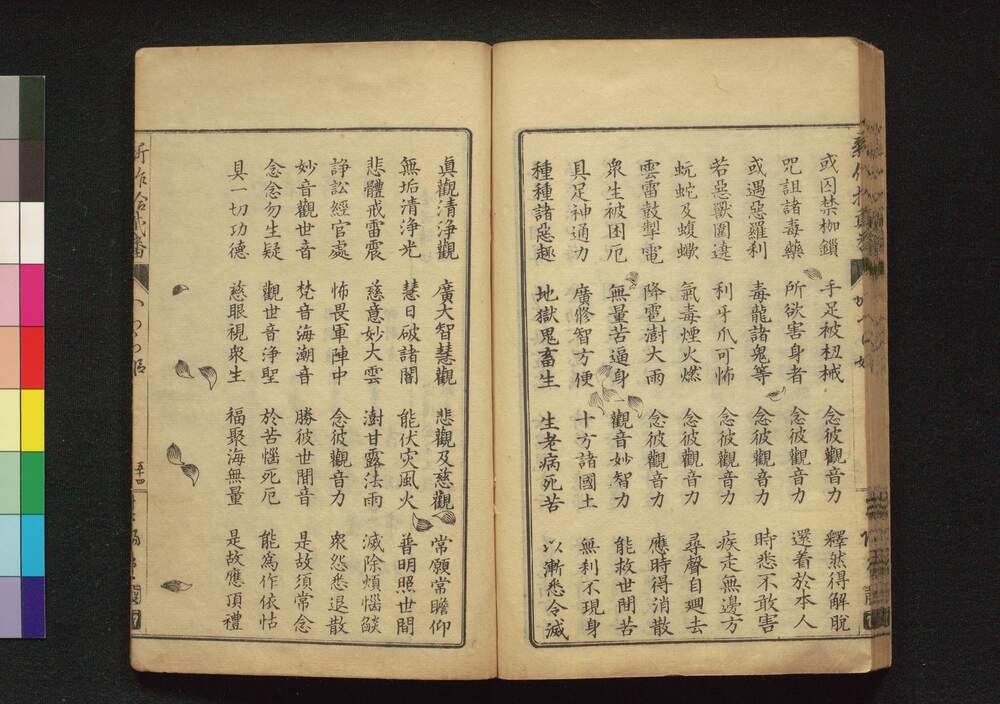 或囚禁枷鎖 手足被杻械 念彼觀音力 釋然得解脫
咒詛諸毒藥 所欲害身者 念彼觀音力 還着於本人
或遇惡羅刹 毒龍諸鬼等 念彼觀音力 時悉不敢害
若惡獸圍遶 利牙爪可怖 念彼觀音力 疾走無邊方
蚖蛇及蝮蠍 氣毒煙火燃 念彼觀音力 尋聲自廻去
雲雷鼓掣電 降雹澍大雨 念彼觀音力 應時得消散
衆生被困厄 無量苦逼身 觀音妙智力 能救世間苦
具足神通力 廣修智方便 十方諸國土 無刹不現身
種種諸惡趣 地獄鬼畜生 生老病死苦 以漸悉令滅
眞觀清浄觀 廣大智慧觀 悲觀及慈觀 常願常瞻仰
無垢清浄光 慧日破諸闇 能伏灾風火 普明照世間
悲體戒雷震 慈意妙大雲 澍甘露法雨 滅除煩惱燄
諍訟經官處 怖畏軍陣中 念彼觀音力 衆怨悉退散
妙音觀世音 梵音海潮音 勝彼世間音 是故須常念
念念勿生疑 觀世音浄聖 於苦惱死厄 能爲作依怙
具一切功德 慈眼視衆生 福聚海無量 是故應頂禮